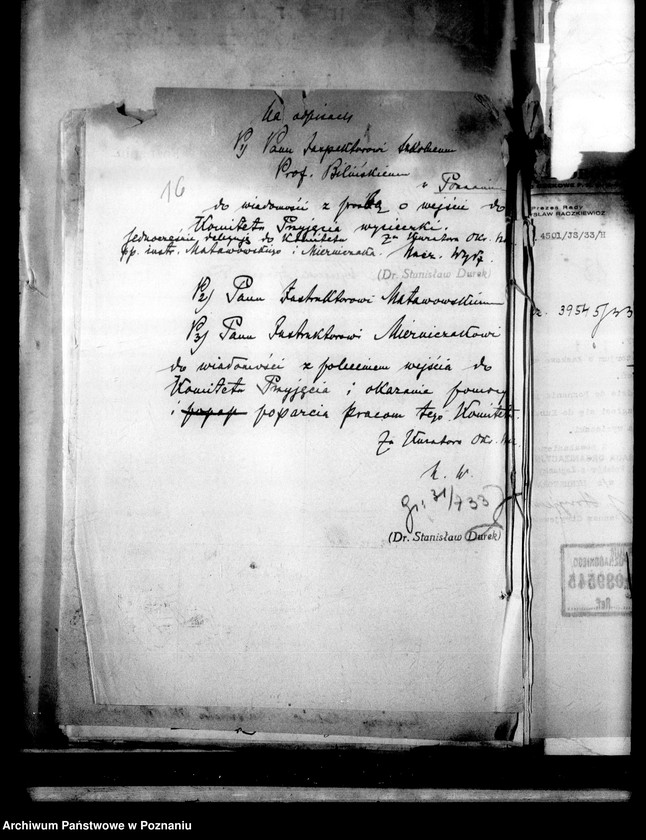 Na odpisach
P1) Panu Inspektorowi Szkolnemu
Prof. Bilińskiemu
w Poznaniu
16
do wiadomości z prośbą o wejście do
Komitetu Przyjęcia wycieczki.
Jednocześnie deleguję do Komitetu Za Kuratora Okr.
pp. instr. Matawowskiego i Mierniczaka. Nacz. Wydz.
(Dr. Stanisław Durek)
P2) Panu Instruktorowi Matawowskiemu
P3) Panu Instruktorowi Mierniczakowi
do wiadomości z poleceniem wejścia do
Komitetu Przyjęcia i okazania pomocy
i poparcia pracom tego Komitetu.
Za Kuratora Okr.
N. W.
31/7 33
(Dr. Stanisław Durek)
Prezes Rady
SŁAW RACZKIEWICZ
4501/JS/33/II
39545/33
Archiwum Państwowe w Poznaniu